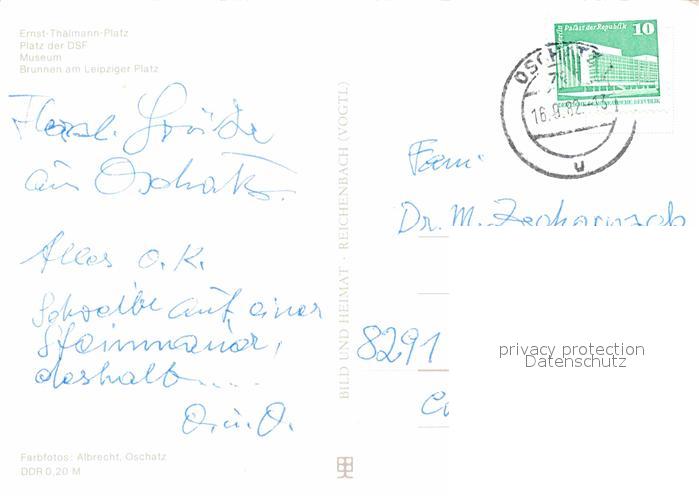 Ernst-Thälmann-Platz
Platz der DSF
Museum
Brunnen am Leipziger Platz
Herzl. Grüße
aus Oschatz.
Alles o.K.
Schreibe auf einer
Steinmauer,
deshalb....
O.u.O.
Farbfotos: Albrecht, Oschatz
DDR 0,20 M
BILD UND HEIMAT · REICHENBACH (VOGTL)
Berlin Palast der Republik 10
DEUTSCHE DEMOKRATISCHE REPUBLIK
OSCHATZ
16.9.82.-13
u
Fam.
Dr. M.
8291
privacy protection
Datenschutz